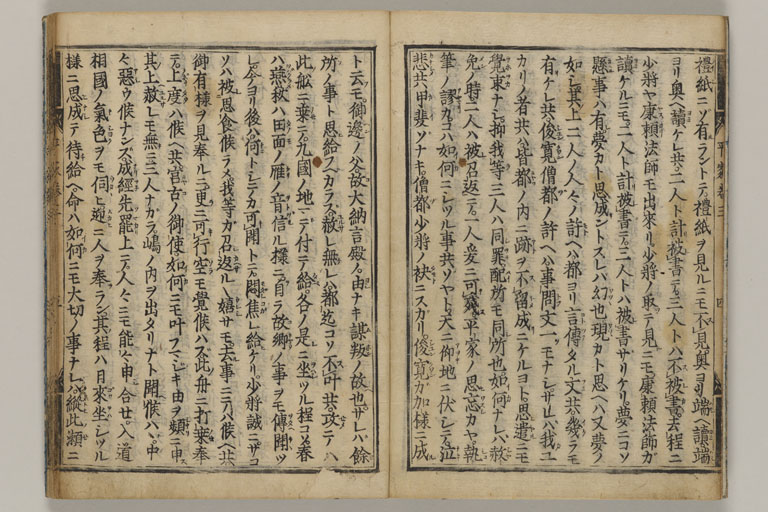 禮紙ニソ有ラントテ禮紙ヲ見ルニモ不見奧ヨリ端ヘ讀端
ヨリ奧ヘ讀ケレ共二人ト計被書テ三人トハ不被書去程ニ
少將ヤ康賴法師モ出來リ少將ノ取テ見ニモ康賴法師カ
讀ケルニモ二人ト計被書テ三人トハ被書サリケリ夢ニコソ
懸事ハ有夢カト思成ントスレハ幻也現カト思ヘハ又夢ノ
如シ其上二人ノ人々ノ許ヘハ都ヨリ言傳タル文共幾ラモ
有ケレ共俊寬僧都ノ許ヘハ事問文一モナシサレハ我ユ
カリノ者共ハ皆都ノ内ニ跡ヲ不留成ニケルヨト思遣ニモ
覺束ナシ抑我等三人ハ同罪配所モ同所也如何ナレハ赦
免ノ時二人ハ被召返テ一人爰ニ可殘平家ノ思忘カヤ執
筆ノ誤カコハ如何ニシツル事共ソヤト天ニ仰地ニ伏シテ泣
悲共甲斐ソナキ僧都少將ノ袂ニスカリ俊寬カ加樣ニ成
ト云モ御邊ノ父故大納言殿ノ由ナキ謀叛ノ故也サレハ餘
所ノ事ト思給ヘカラス赦レ無レハ都迄コソ不叶共攻テハ
此舩ニ乘テ九國ノ地ニ付テ給各ノ是ニ坐ツル程コソ春
ハ燕秋ハ田面ノ雁ノ音信ル樣ニ自ラ故鄕ノ事ヲモ傳聞ツ
レ今ヨリ後ハ何トシテカ可聞トテ悶焦レ給ケリ少將誠ニサコ
ソハ被思食候ラメ我等カ召返ルヽ嬉サモ去事ニテハ候ヘ共
御有樣ヲ見奉ルニ更ニ可行空モ覺候ハス此舟ニ打乘奉
テ上度ハ候ヘ共宮古ノ御使如何ニモ叶フマシキ由ヲ頻ニ申
其上赦レモ無ニ三人ナカラ嶋ノ内ヲ出タリナト聞候ハヽ中
々惡ウ候ナンス成經先罷上テ人々ニモ能々申合セ入道
相國ノ氣色ヲモ伺ヒ迎ニ人ヲ奉ラン其程ハ月來坐シツル
樣ニ思成テ待給ヘ命ハ如何ニモ大切ノ事ナレハ縱此類ニ